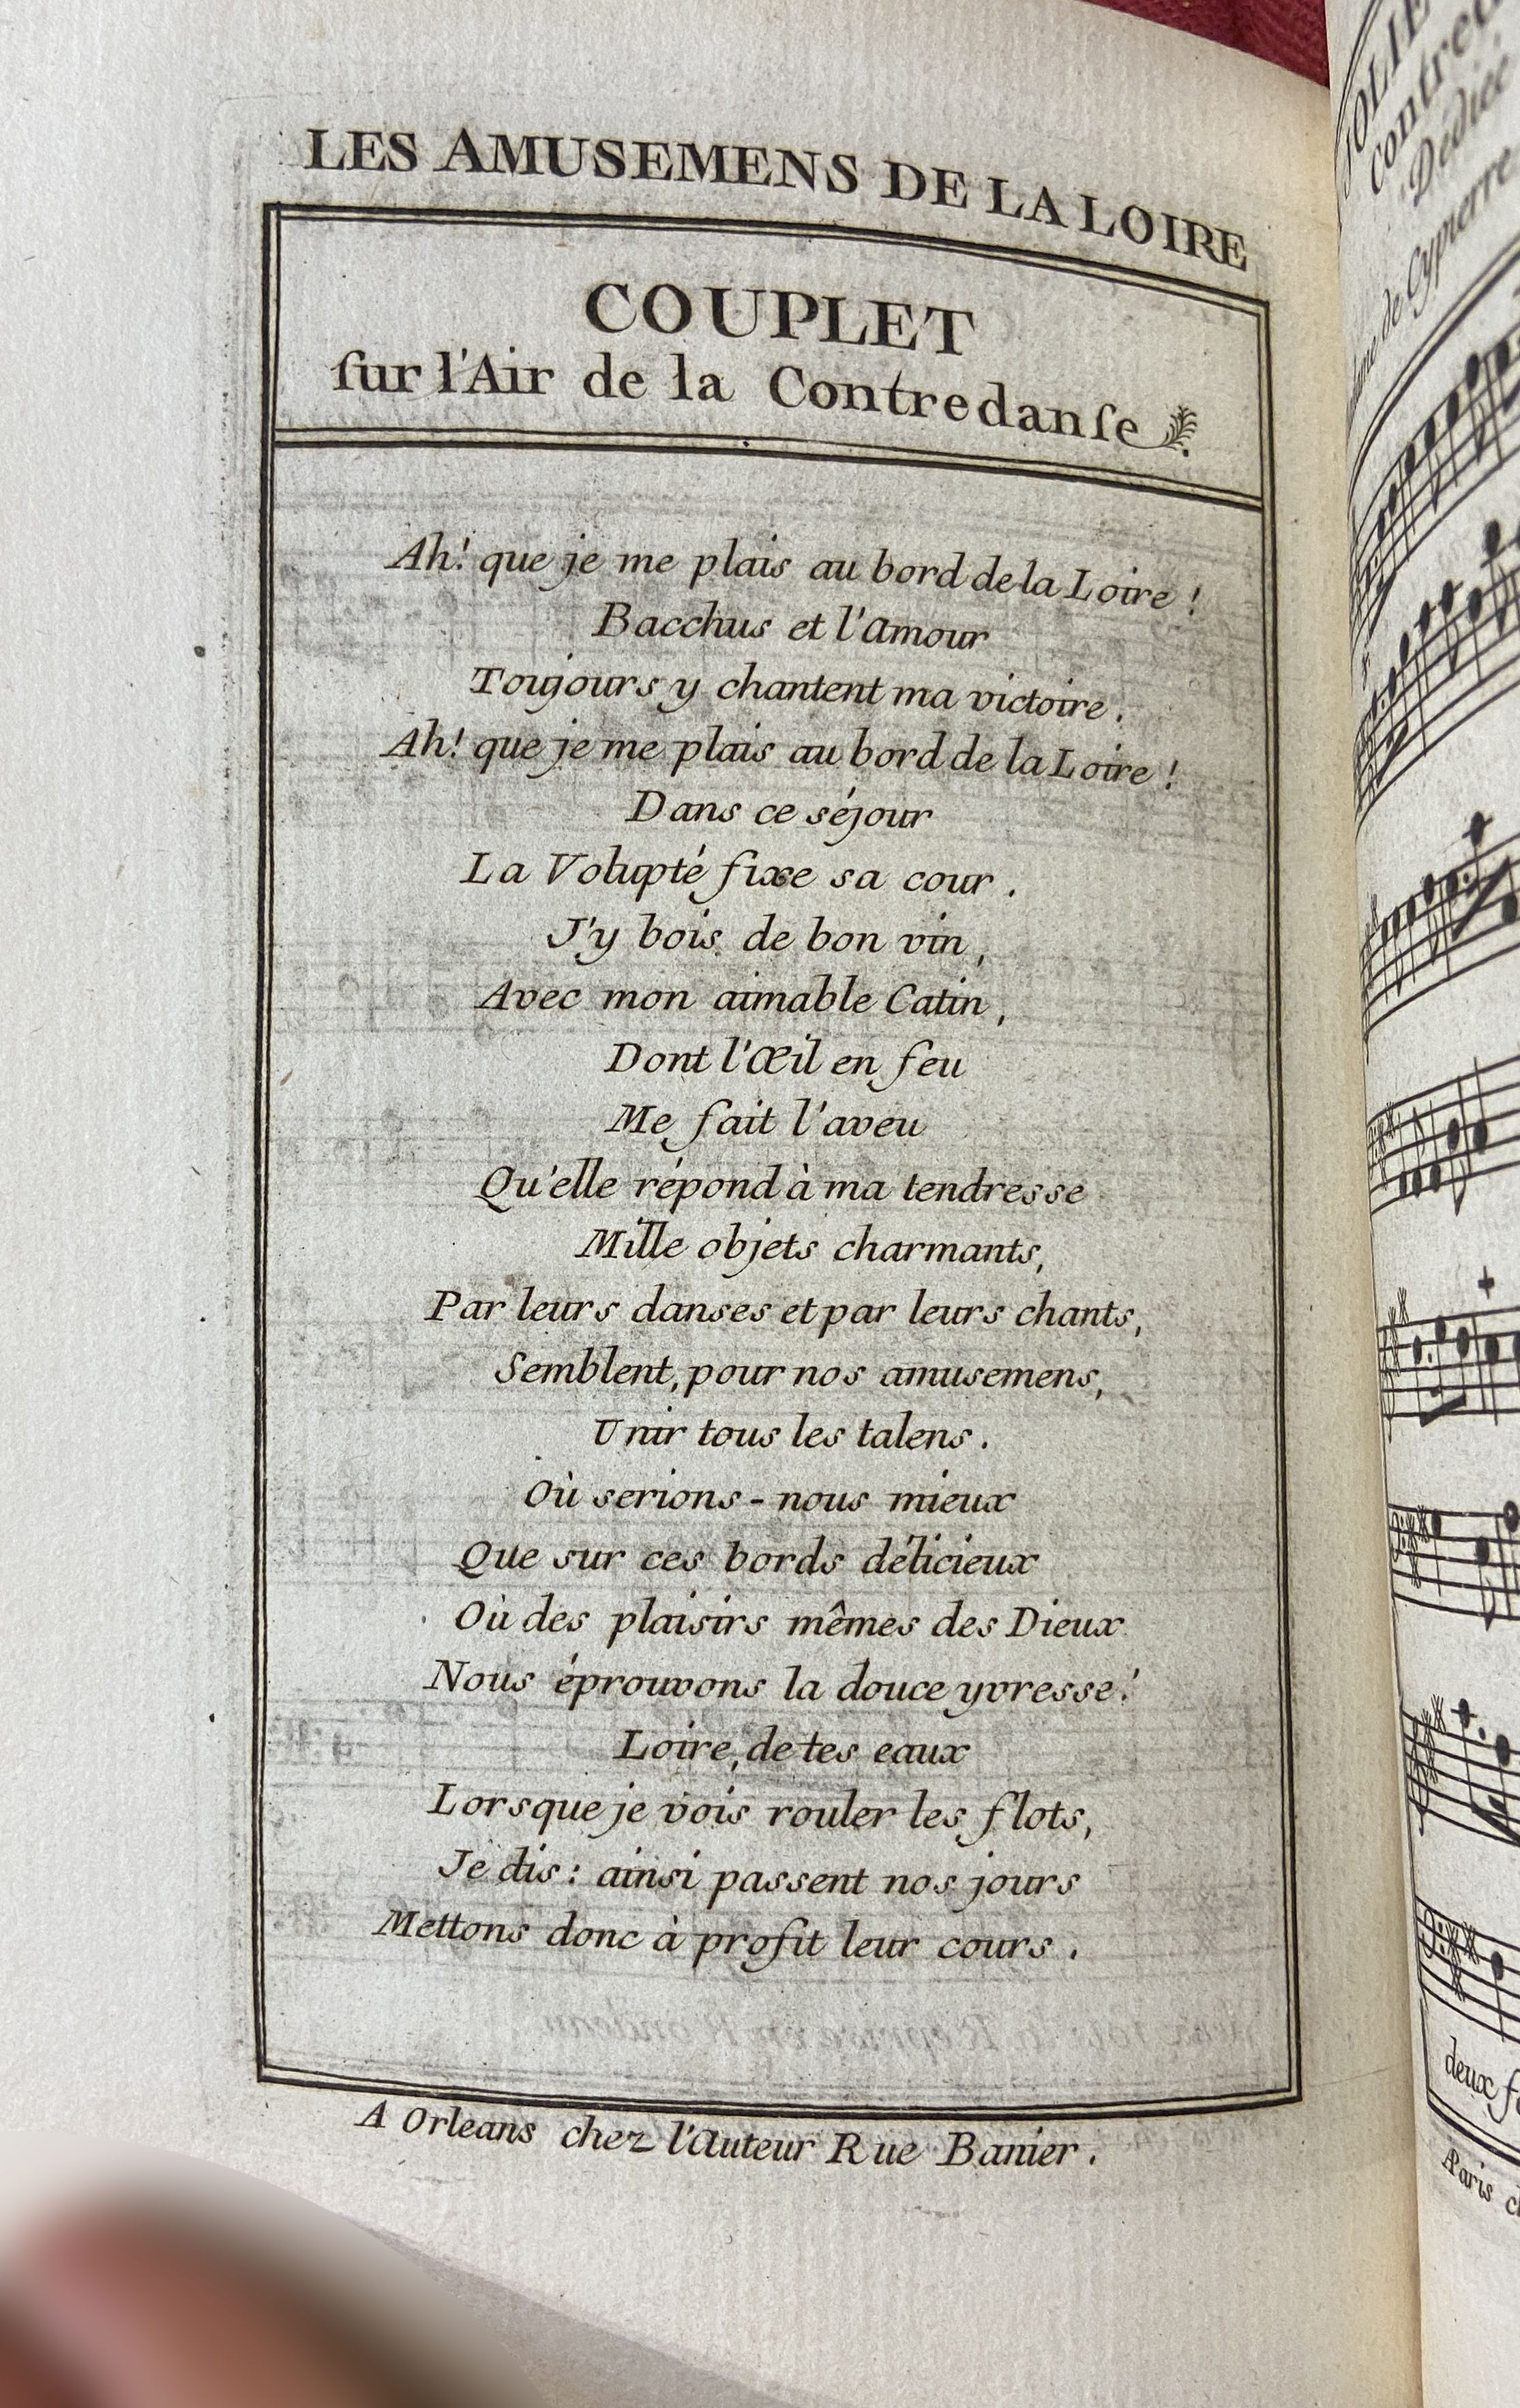 LES AMUSEMENS DE LA LOIRE
COUPLET
ſur l'Air de la Contredanſe
Ah! que je me plais au bord de la Loire !
Bacchus et l'Amour
Toujours y chantent ma victoire.
Ah! que je me plais au bord de la Loire !
Dans ce séjour
La Volupté fixe sa cour.
J'y bois de bon vin,
Avec mon aimable Catin,
Dont l'Œil en feu
Me fait l'aveu
Qu'elle répond à ma tendresse
Mille objets charmants,
Par leurs danses et par leurs chants,
Semblent, pour nos amusemens,
Unir tous les talens.
Où serions-nous mieux
Que sur ces bords délicieux
Où des plaisirs mêmes des Dieux
Nous éprouvons la douce yvresse!
Loire, de tes eaux
Lorsque je vois rouler les flots,
Je dis : ainsi passent nos jours
Mettons donc à profit leur cours.
A Orleans chez l'Auteur Rue Banier.
JOLIE
Contred
Dédiée
de Cypierre
deux
Paris